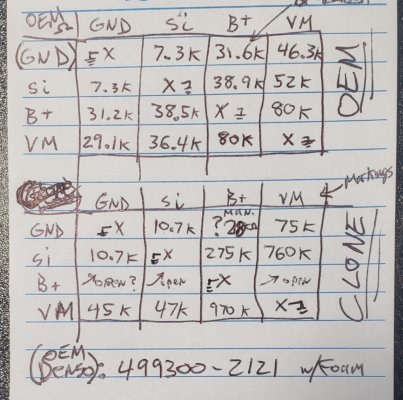 OEM GND Si B+ VM
(GND) X 7.3K 31.6K 46.3K
Si 7.3K X 38.9K 52K
B+ 31.2K 38.5K X 80K
VM 29.1K 36.4K 80K X
OEM
Markings
GND Si B+ VM
MAN.
GND X 10.7K ? 75K
Si 10.7K X 275K 760K
B+ ↗OPEN? ↗OPEN X ↗OPEN
VM 45K 47K 970K X
CLONE
(OEM DENSO): 499300-2121 w/Foam